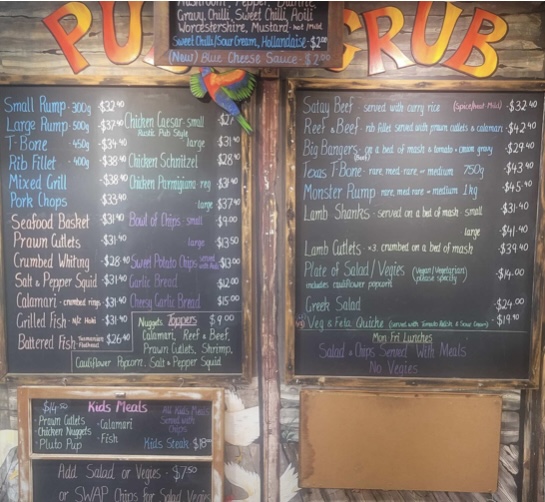 PU GRUB
Mushroom, Pepper, Dianne,
Gravy, Chilli, Sweet Chilli, Aioli
Worcestershire, Mustard - Hot/Mild
Sweet Chilli/Sour Cream, Hollandaise · $2⁰⁰
(New) Blue Cheese Sauce - $2.00
Small Rump · 300g · $32⁴⁰
Large Rump · 500g · $37⁴⁰
T-Bone · 450g · $34⁴⁰
Rib Fillet · 400g · $38⁴⁰
Mixed Grill · $38⁴⁰
Pork Chops $33⁴⁰
Seafood Basket · $31⁴⁰
Prawn Cutlets · $31⁴⁰
Crumbed Whiting · $28⁴⁰
Salt & Pepper Squid · $31⁴⁰
Calamari · crumbed rings · $31⁴⁰
Grilled Fish · NZ Hoki · $31⁴⁰
Battered Fish Tasmanian Flathead $26⁴⁰
Chicken Caesar small
Rustic Pub Style
large $31⁴⁰
Chicken Schnitzel $28⁴⁰
Chicken Parmigiana reg $31⁴⁰
large $37⁴⁰
Bowl of Chips · small $9.00
large $13.50
Sweet Potato Chips served with Aioli $13.00
Garlic Bread $12.00
Cheesy Garlic Bread $15.00
Nuggets Toppers $9.00
Calamari, Reef & Beef,
Prawn Cutlets, Shrimp,
Cauliflower Popcorn, Salt & Pepper Squid
Satay Beef · served with curry rice (Spicy/not Mild) · $32.⁴⁰
Reef & Beef · rib fillet served with prawn cutlets & calamari · $42.⁴⁰
Big Bangers · on a bed of mash & tomato & onion gravy · $29.⁴⁰
(Beef)
Texas T Bone · rare, med-rare or medium 750g · $43.⁴⁰
Monster Rump rare, med rare or medium 1kg · $45.⁴⁰
Lamb Shanks · served on a bed of mash small · $31.⁴⁰
large · $41.⁴⁰
Lamb Cutlets · x3 crumbed on a bed of mash · $39.⁴⁰
Plate of Salad/Vegies (Vegan/Vegetarian) please specify · $14.00
includes cauliflower popcorn
Greek Salad · $24.00
Veg & Feta Quiche (served with Tomato Relish & Sour Cream) · $19.⁴⁰
Mon Fri Lunches
Salad & Chips Served With Meals
No Vegies
$14.⁵⁰ Kids Meals
· Prawn Cutlets
· Chicken Nuggets
· Pluto Pup
· Calamari
· Fish
All Kids Meals
Served with
Chips
Kids Steak $18⁰⁰
Add Salad or Vegies · $7⁵⁰
or SWAP Chips for Salad Vegies